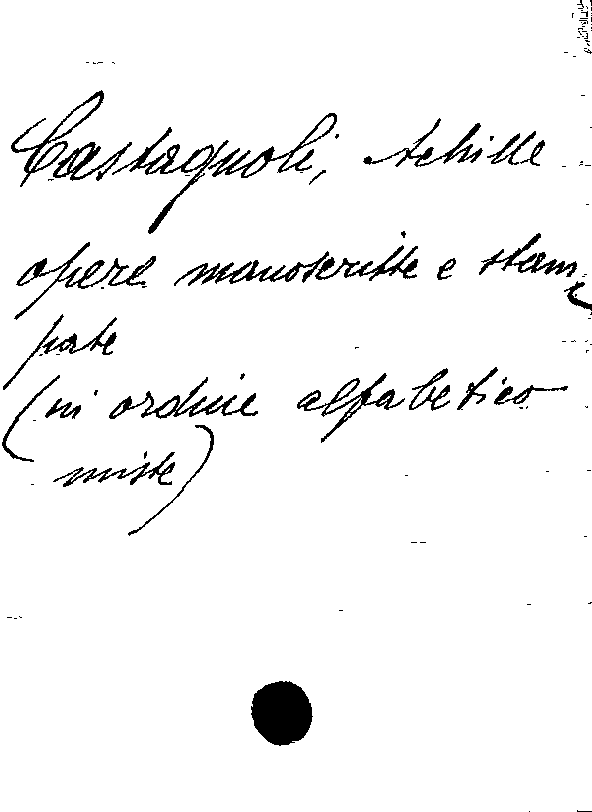 Castagnoli, Achille
opere manoscritte e stam,
pate
(in ordine alfabetico
miste)